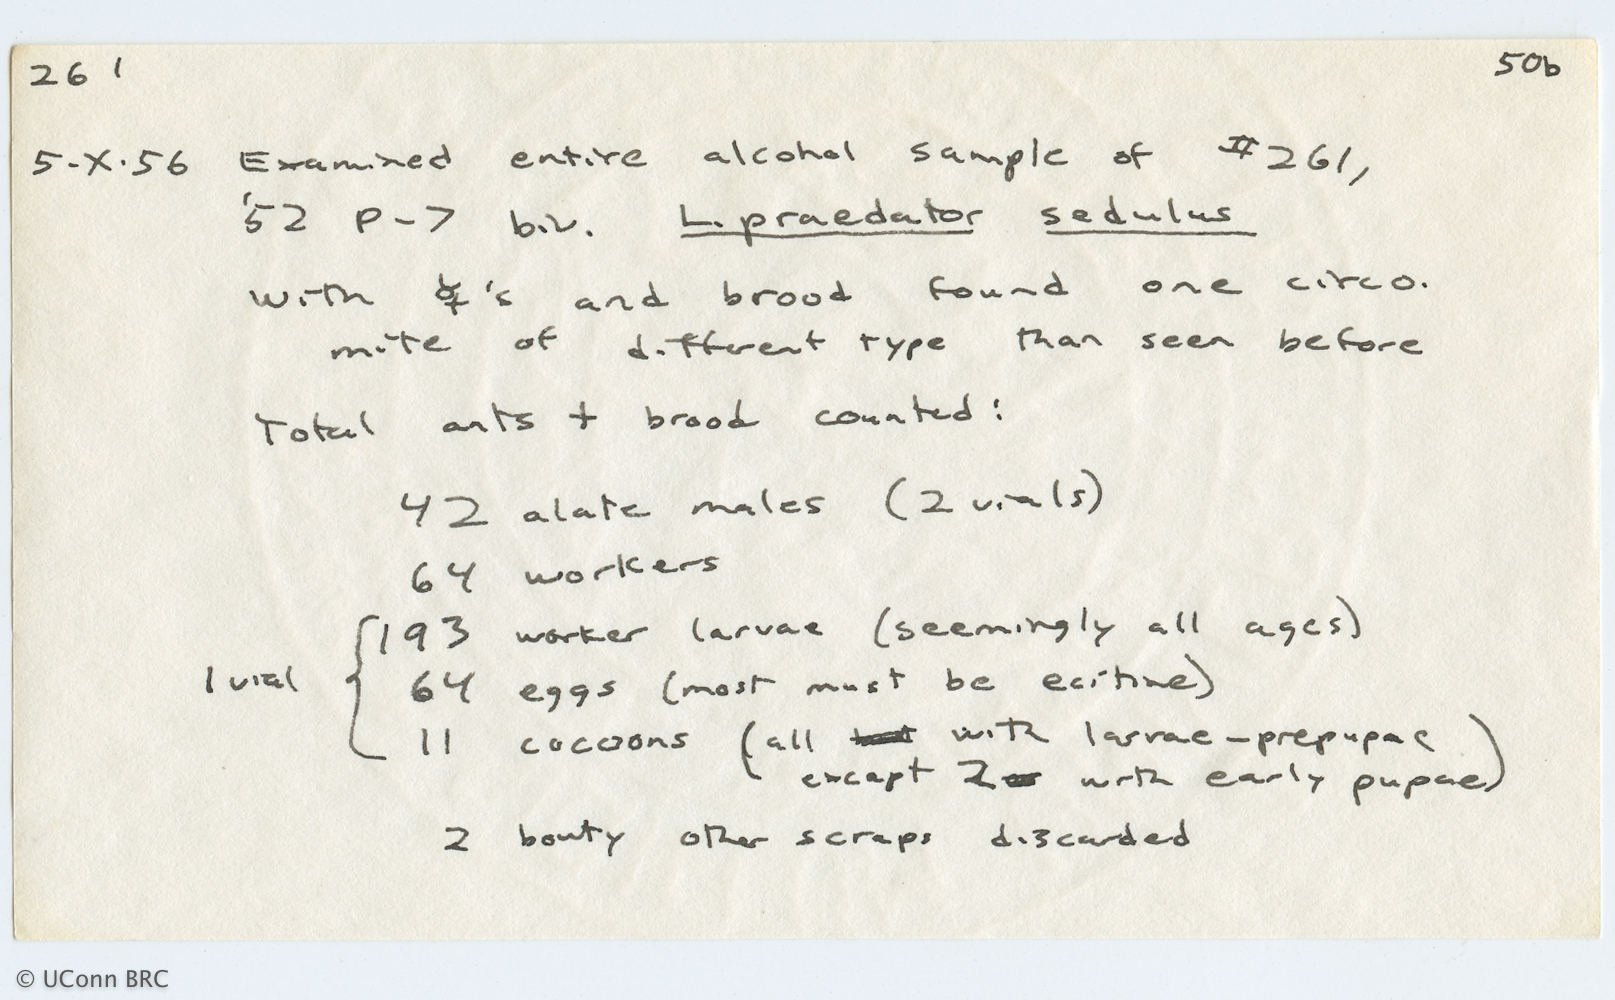 261 50b
5-X-56 Examined entire alcohol sample of #261,
'52 P-7 biv. L. praedator sedulus
with ☿'s and brood found one circo.
mite of different type than seen before
Total ants + brood counted:
42 alate males (2 vials)
64 workers
193 worker larvae (seemingly all ages)
1 vial { 64 eggs (most must be ecitine)
11 cocoons (all with larvae-prepupae
except 2 with early pupae)
2 booty other scraps discarded
© UConn BRC